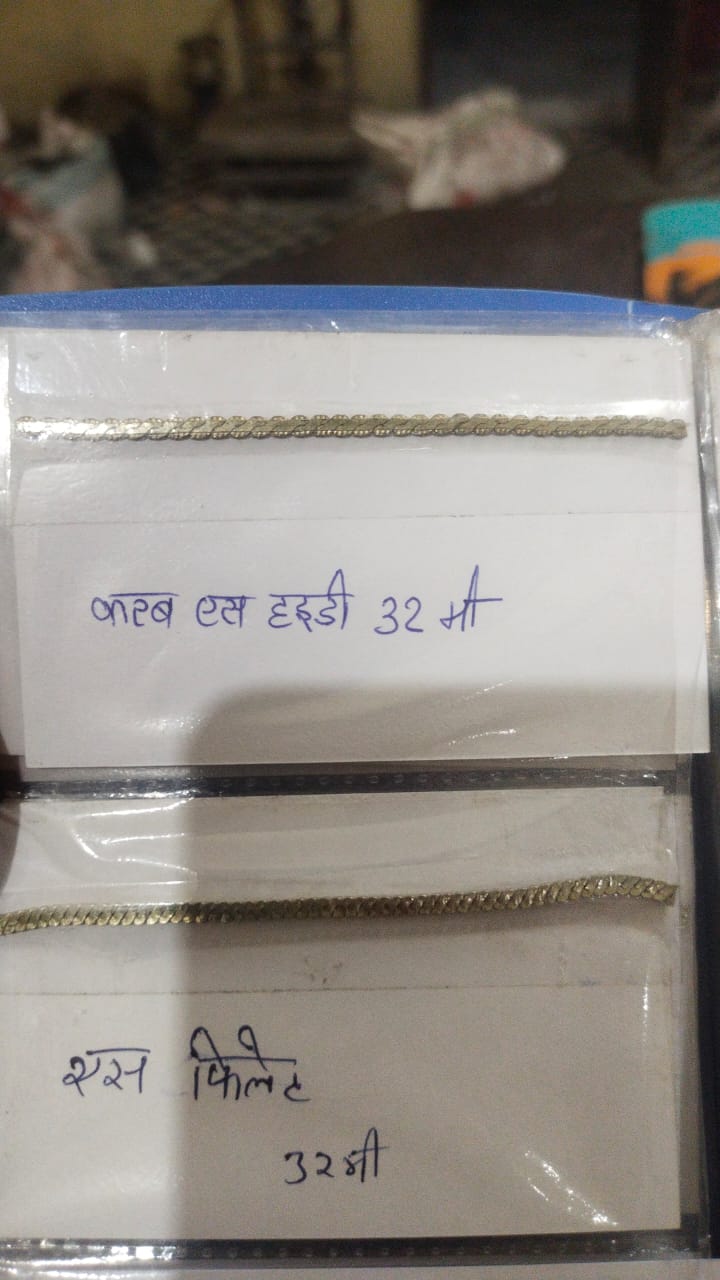 करब एस हइडी 32 मी
एस फिलेट
32 मी